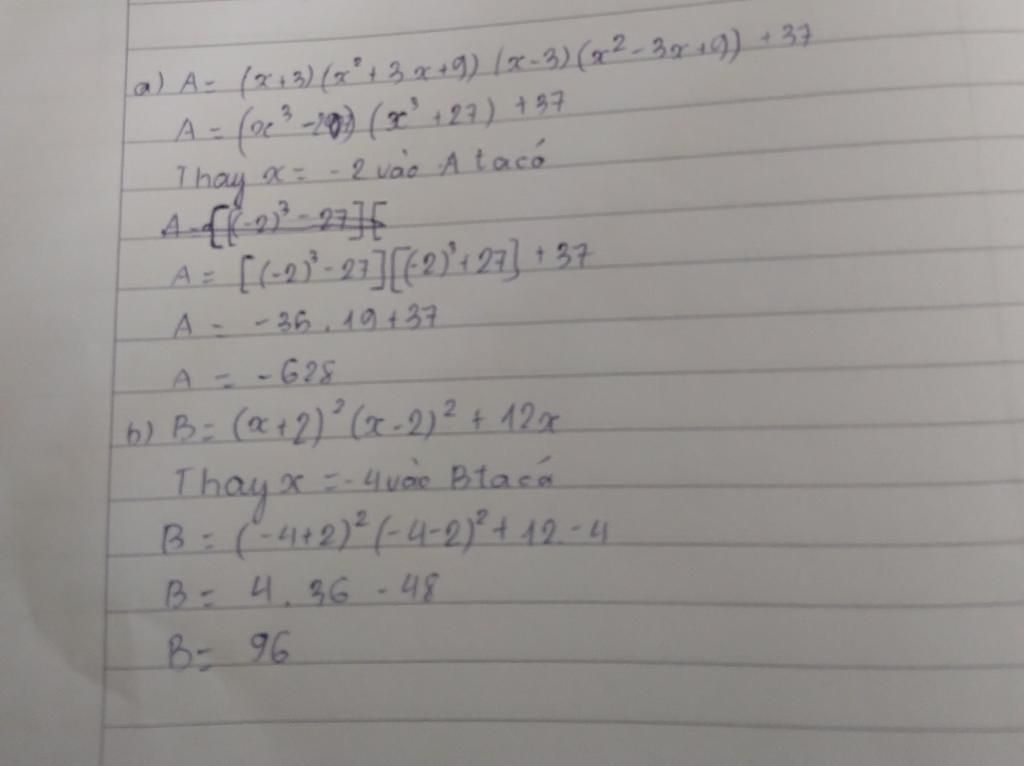 a) A = (x+3)(x²+3x+9)(x-3)(x²-3x+9)+37
A = (x³-27)(x³+27)+37
Thay x = -2 vào A ta có
A = [(-2)³-27][
A = [(-2)³-27][(-2)³+27]+37
A = -35.19+37
A = -628
b) B = (x+2)²(x-2)²+12x
Thay x = -4 vào B ta có
B = (-4+2)²(-4-2)²+12.-4
B = 4.36-48
B = 96